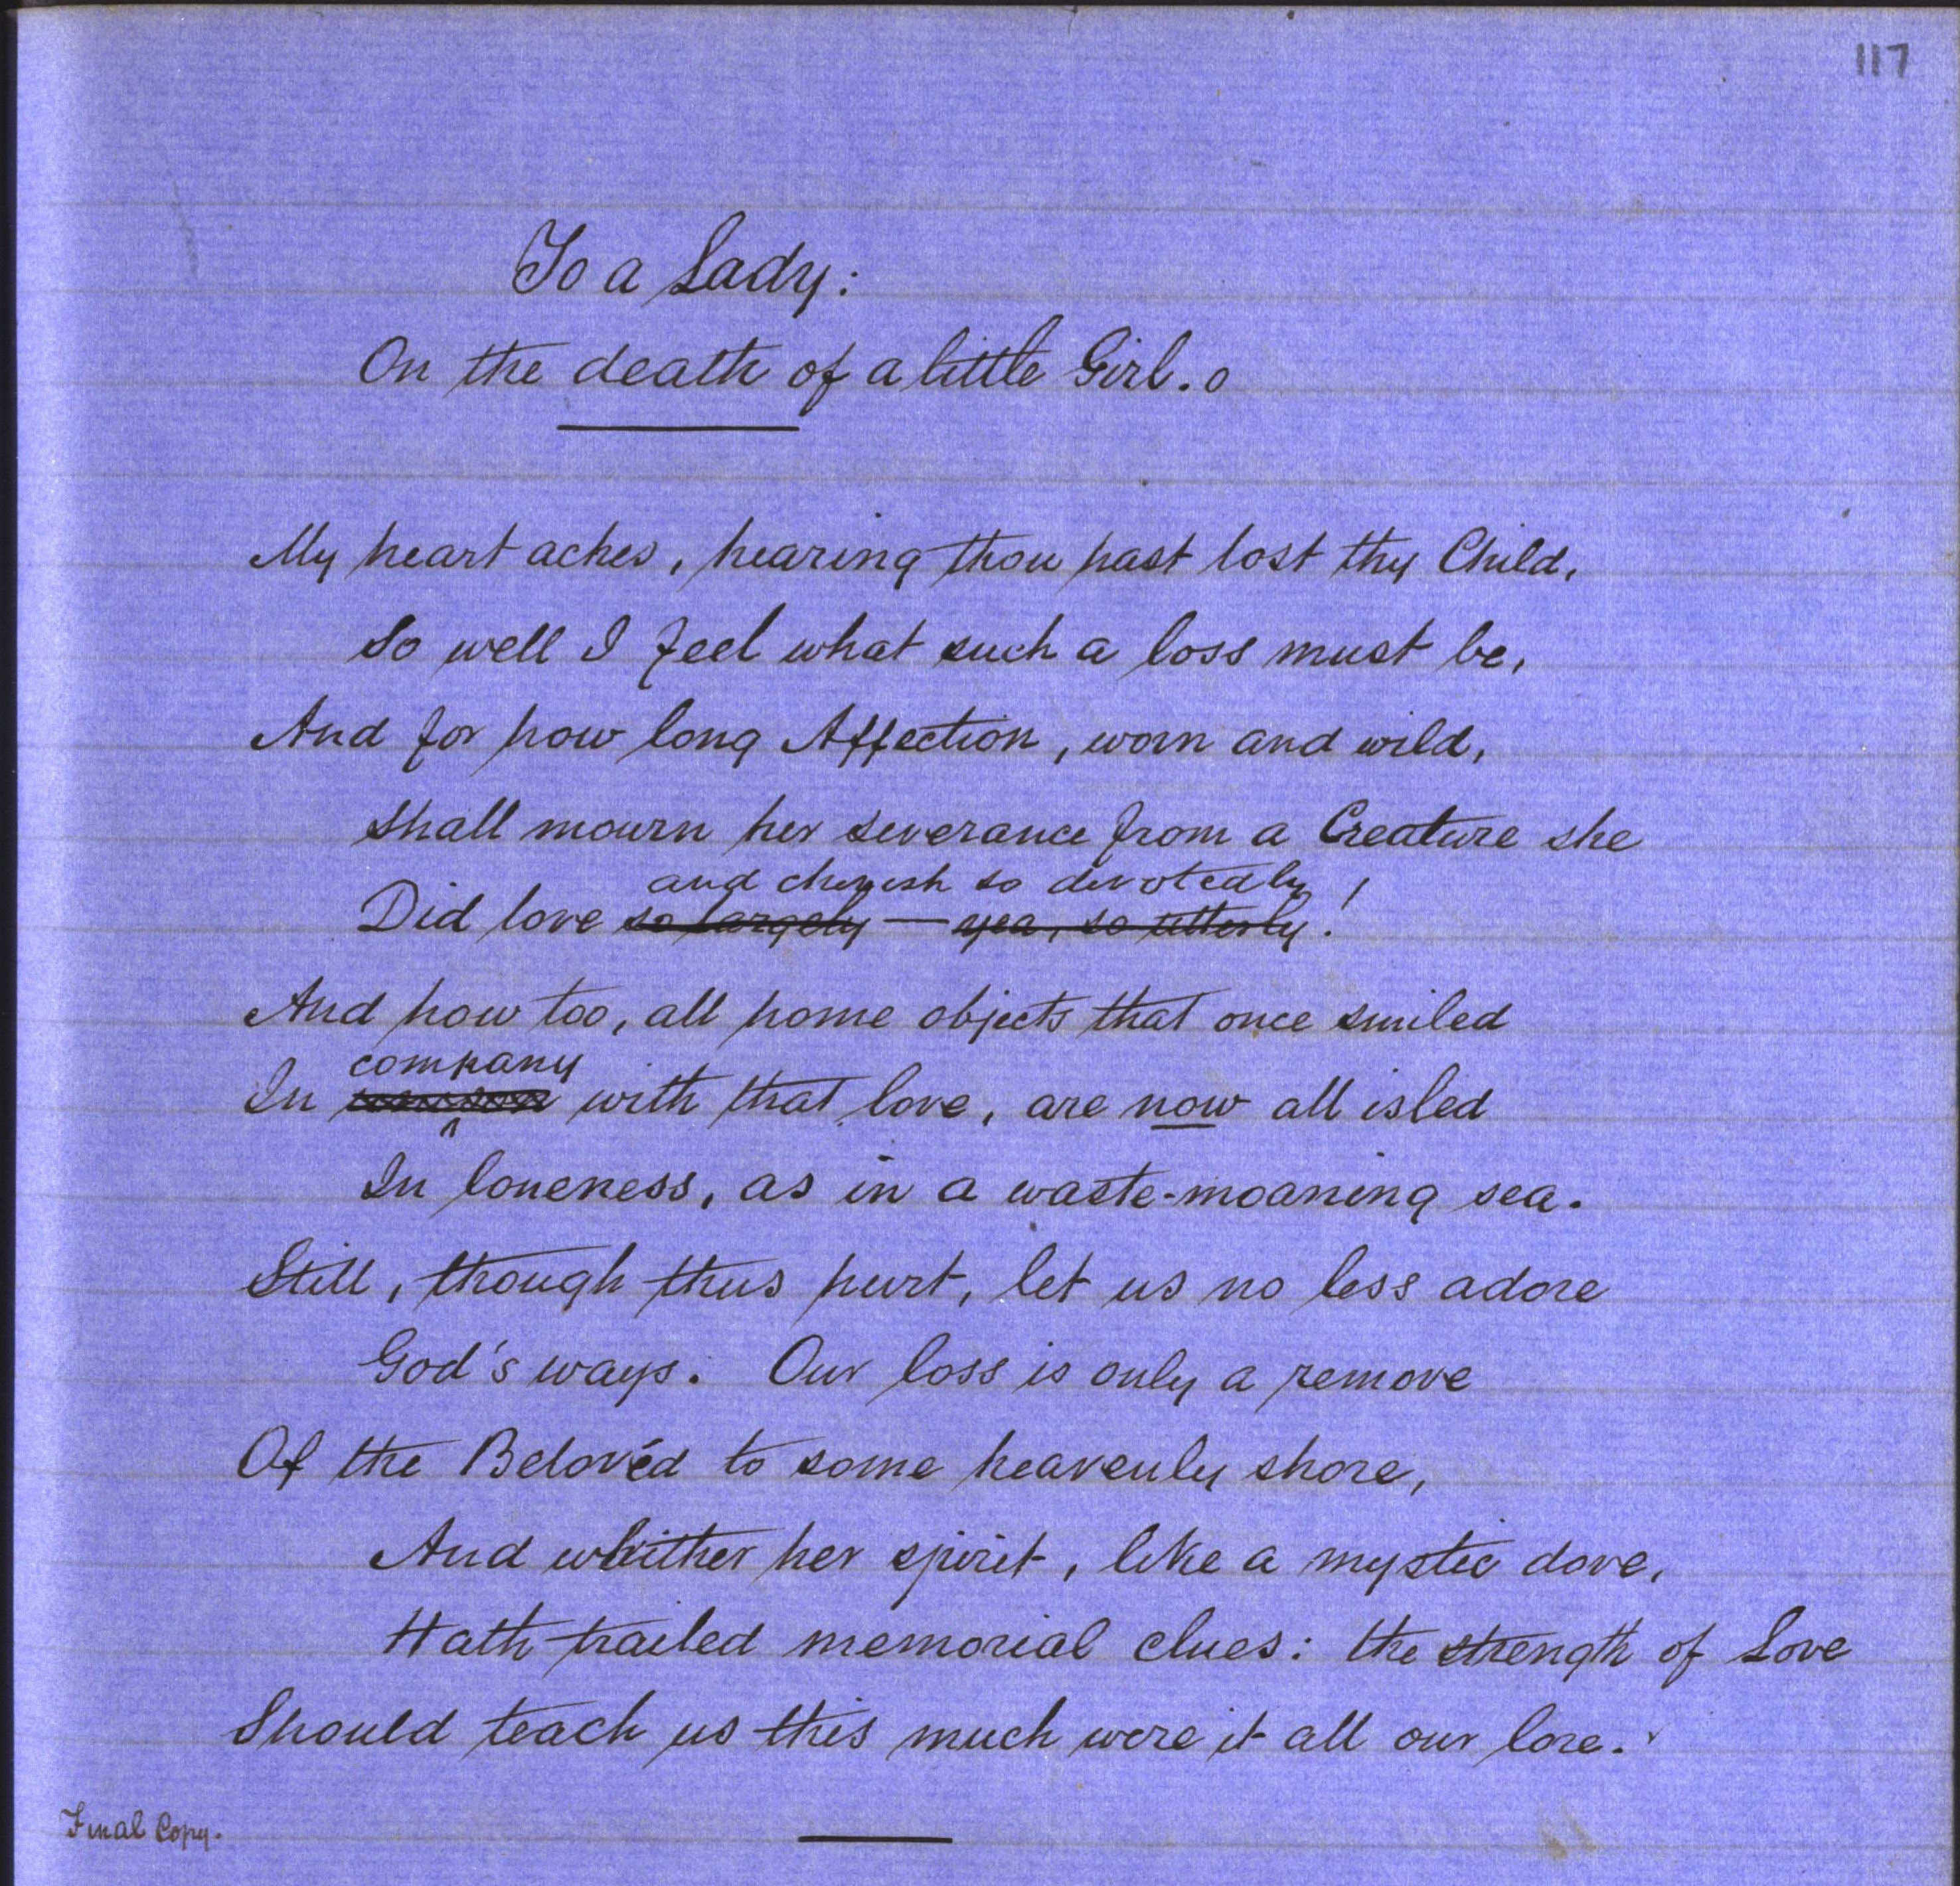 117
To a Lady:
On the death of a little Girl. o
My heart aches, hearing thou hast lost thy Child,
So well I feel what such a loss must be,
And for how long Affection, worn and wild,
Shall mourn her severance from a Creature she
and cherish so devotedly!
Did love so largely — yea, so utterly!
And how too, all home objects that once smiled
company
In with that love, are now all isled
In loneness, as in a waste-moaning sea.
Still, though thus hurt, let us no less adore
God's ways. Our loss is only a remove
Of the Belovéd to some heavenly shore,
And whither her spirit, like a mystic dove,
Hath trailed memorial clues: the strength of Love
Should teach us this much were it all our lore.
Final Copy.